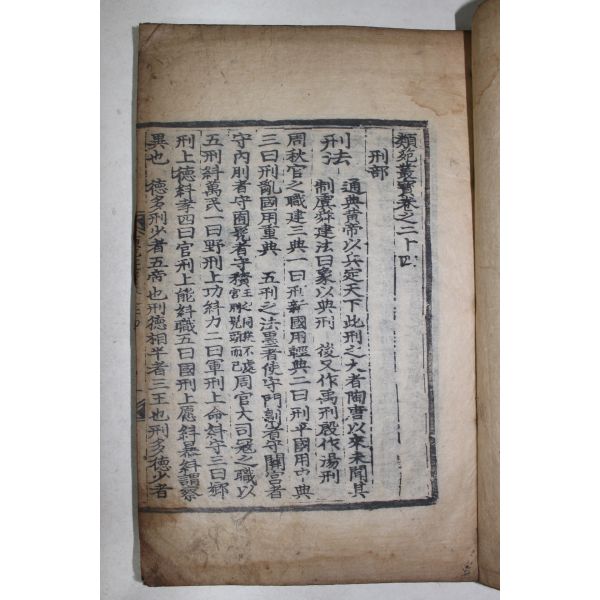 類苑叢寶卷之二十四
刑部
刑法 通典黃帝以兵定天下此刑之大者陶唐以來未聞其
制虞舜建法曰象以典刑 後又作禹刑殷作湯刑
周秋官之職建三典一曰刑新國用輕典二曰刑平國用中典
三曰刑亂國用重典 五刑之法墨者使守門劓者守關宮者
守內刖者守囿髡者守積王之同族不處宮刑髡頭而已周官大司寇之職以
五刑糾萬民一曰野刑上功糾力二曰軍刑上命糾守三曰鄉
刑上德糾孝四曰官刑上能糾職五曰國刑上愿糾暴糾謂察
異也 德多刑少者五帝也刑德相半者三王也刑多德少者